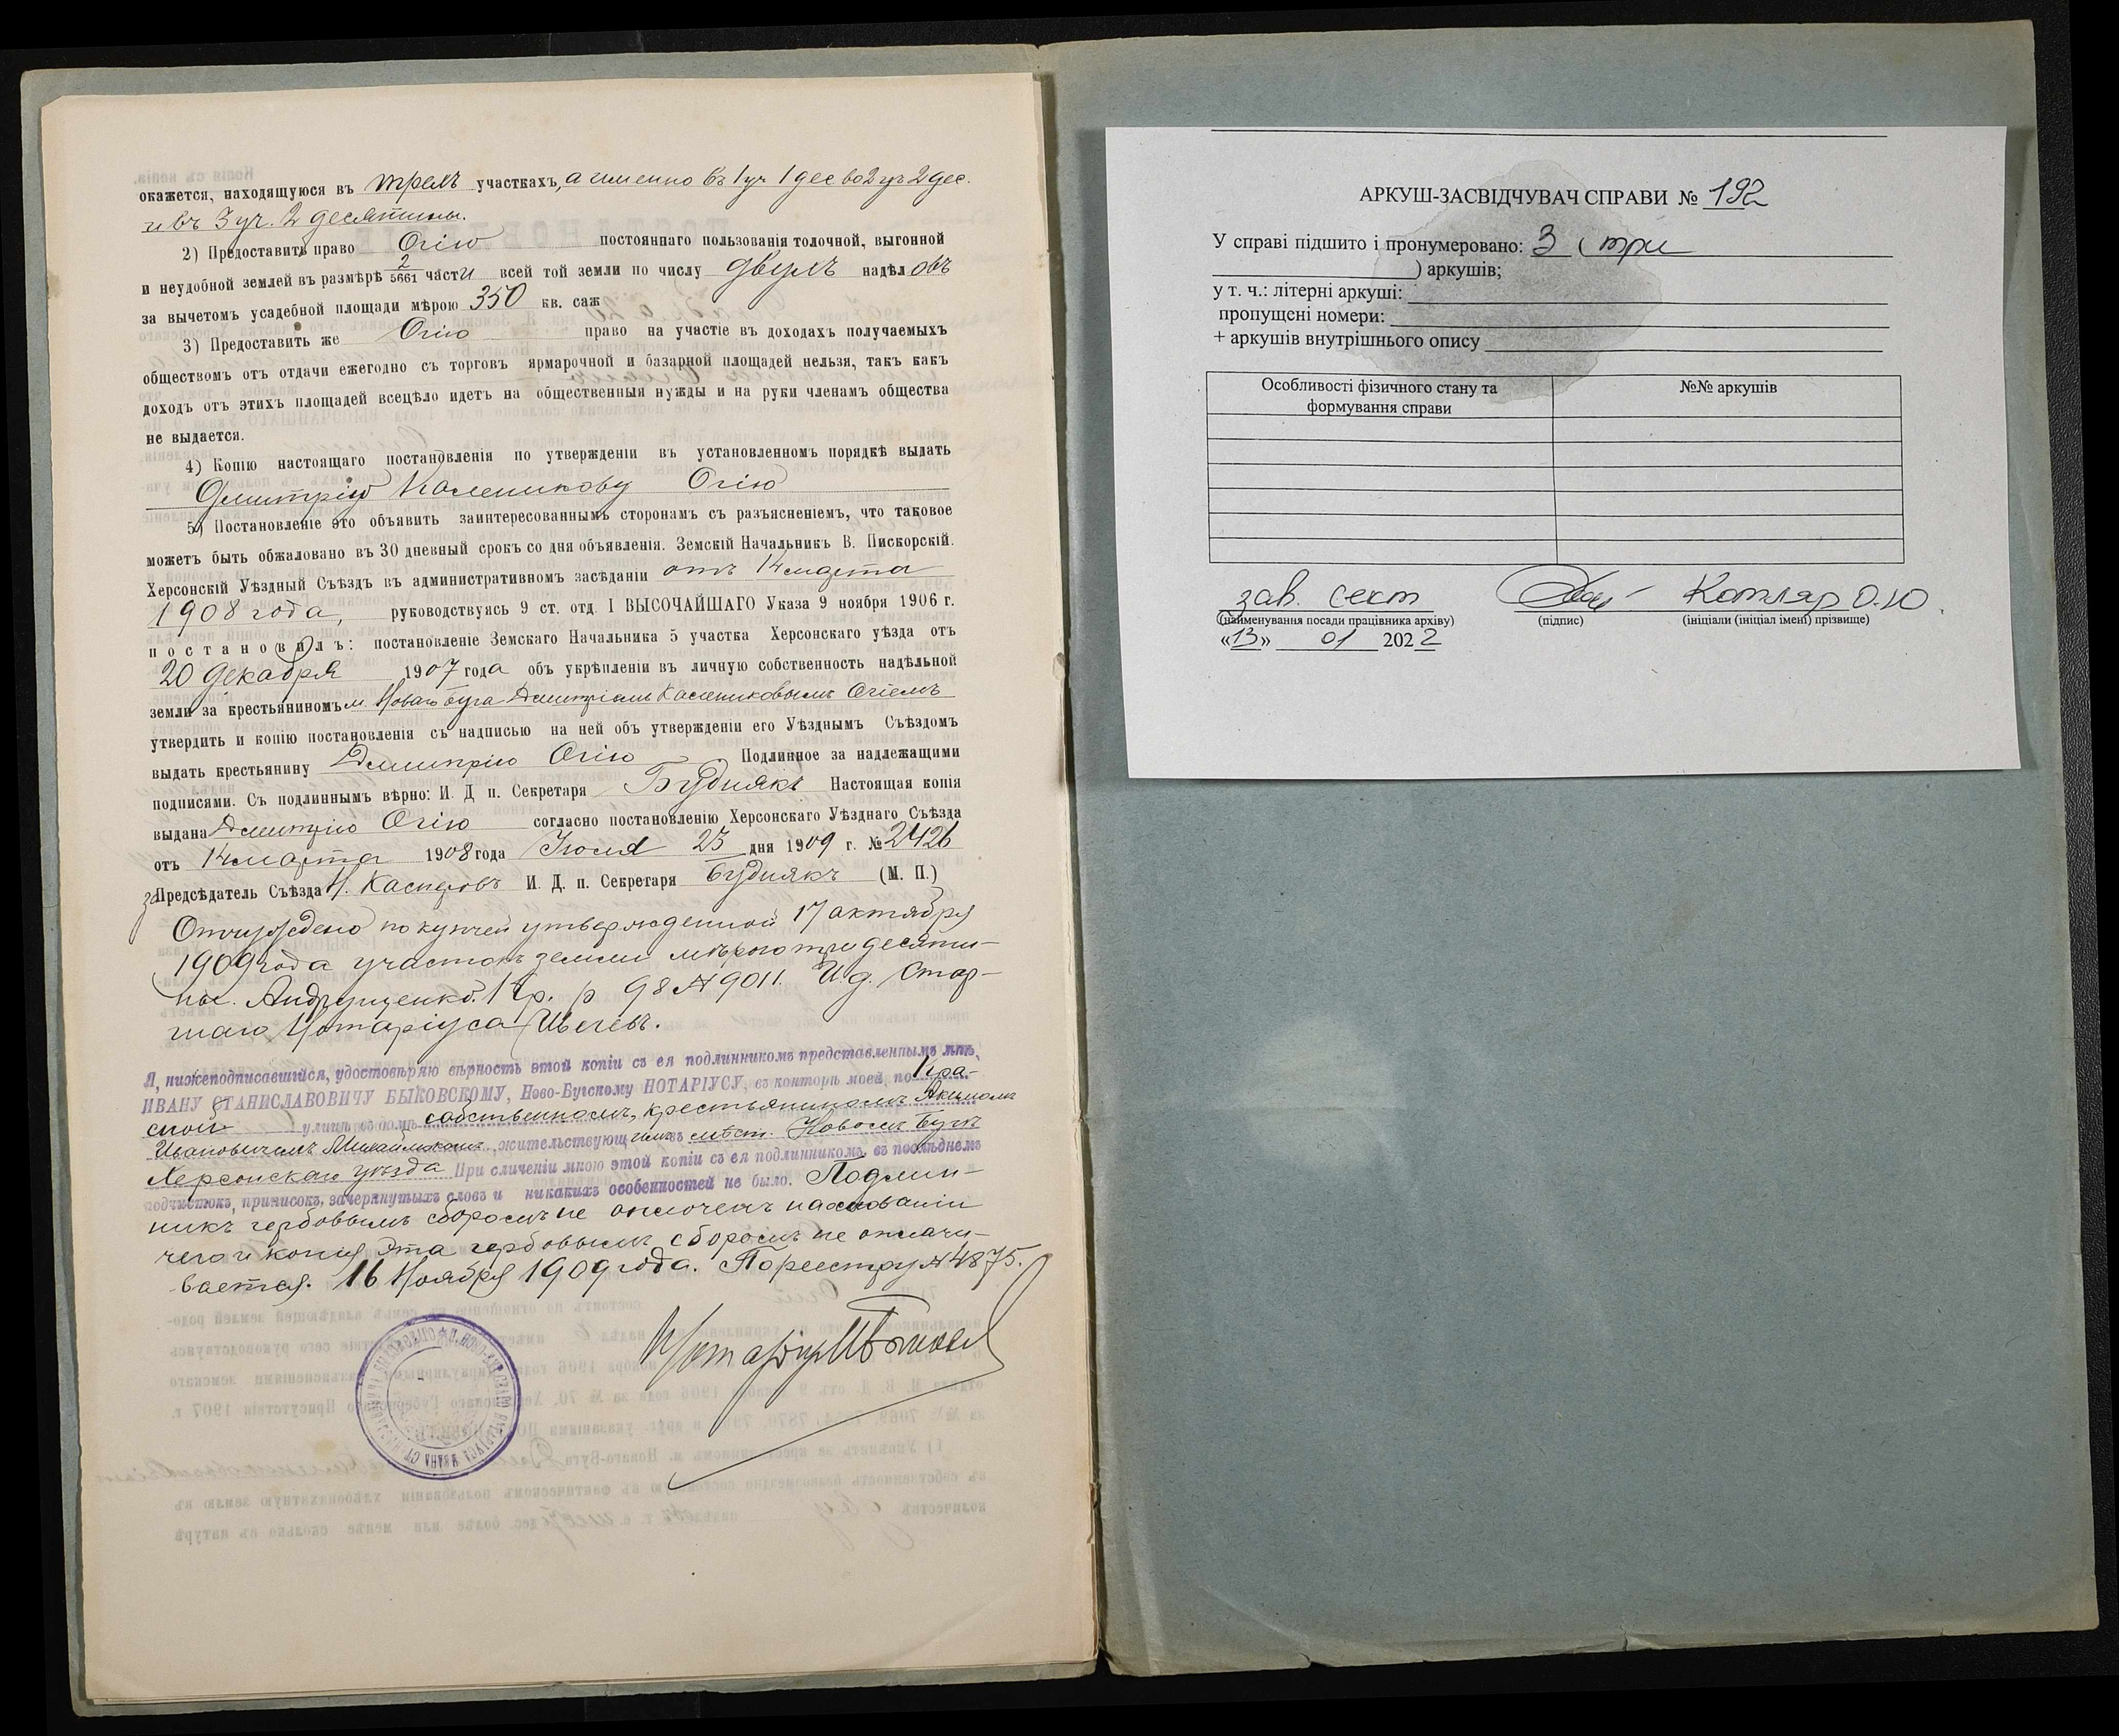 окажется, находящуюся въ трехъ участкахъ, а именно въ 1 уч 1 дес во 2 уч 2 дес.
и въ 3 уч. 2 десятины.
2) Предоставить право Огію постояннаго пользованія толочной, выгонной
и неудобной землей въ размѣрѣ 2/5661 части всей той земли по числу двухъ надѣловъ
за вычетомъ усадебной площади мѣрою 350 кв. саж
3) Предоставить же Огію право на участіе въ доходахъ получаемыхъ
обществомъ отъ отдачи ежегодно съ торговъ ярмарочной и базарной площадей нельзя, такъ какъ
доходъ отъ этихъ площадей всецѣло идетъ на общественныя нужды и на руки членамъ общества
не выдается.
4) Копію настоящаго постановленія по утвержденіи въ установленномъ порядкѣ выдать
Дмитрію Каленикову Огію
5) Постановленіе это объявить заинтересованнымъ сторонамъ съ разъясненіемъ, что таковое
можетъ быть обжаловано въ 30 дневный срокъ со дня объявленія. Земскій Начальникъ В. Пискорскій.
Херсонскій Уѣздный Съѣздъ въ административномъ засѣданіи отъ 14 марта
1908 года, руководствуясь 9 ст. отд. I ВЫСОЧАЙШАГО Указа 9 ноября 1906 г.
постановилъ: постановленіе Земскаго Начальника 5 участка Херсонскаго уѣзда отъ
20 декабря 1907 года объ укрѣпленіи въ личную собственность надѣльной
земли за крестьяниномъ м. Новаго Буга Дмитріемъ Калениковымъ Огіемъ
утвердить и копію постановленія съ надписью на ней объ утвержденіи его Уѣзднымъ Съѣздомъ
выдать крестьянину Дмитрію Огію Подлинное за надлежащими
подписями. Съ подлиннымъ вѣрно: И. Д п. Секретаря Буднякъ Настоящая копія
выдана Дмитрію Огію согласно постановленію Херсонскаго Уѣзднаго Съѣзда
отъ 14 марта 1908 года Іюля 23 дня 1909 г. № 2426
за Предсѣдатель Съѣзда Н. Касперовъ И. Д. п. Секретаря Буднякъ (М. П.)
Отчуждено по купчей утвержденной 17 октября
1909 года участокъ земли мѣрою три десяти-
ны. Андрущенко. 1 кр. р 98 № 9011. И.д. Стар-
шаго Нотаріуса
Я, нижеподписавшійся, удостовѣряю вѣрность этой копіи съ ея подлинникомъ представленнымъ мнѣ,
ИВАНУ СТАНИСЛАВОВИЧУ БЫКОВСКОМУ, Ново-Бугскому НОТАРІУСУ, въ конторѣ моей, по Кра-
сной улицѣ въ домѣ собственномъ, крестьяниномъ Акимомъ
Ивановичемъ жительствующимъ въ мѣст. Новомъ Бугѣ
Херсонскаго уѣзда При сличеніи мною этой копіи съ ея подлинникомъ, въ послѣднемъ
подчистокъ, приписокъ, зачеркнутыхъ словъ и никакихъ особенностей не было. Подлин-
никъ гербовымъ сборомъ не оплоченъ на основаніи
чего и копія эта гербовымъ сборомъ не оплачи-
вается. 16 Ноября 1909 года. По реестру № 4875.
Нотаріусъ И Быковск
АРКУШ-ЗАСВІДЧУВАЧ СПРАВИ № 192
У справі підшито і пронумеровано: 3 (три
) аркушів;
у т. ч.: літерні аркуші:
пропущені номери:
+ аркушів внутрішнього опису
Особливості фізичного стану та формування справи №№ аркушів
зав. сект Котляр О.Ю.
(найменування посади працівника архіву) (підпис) (ініціали (ініціал імені) прізвище)
«13» 01 2022